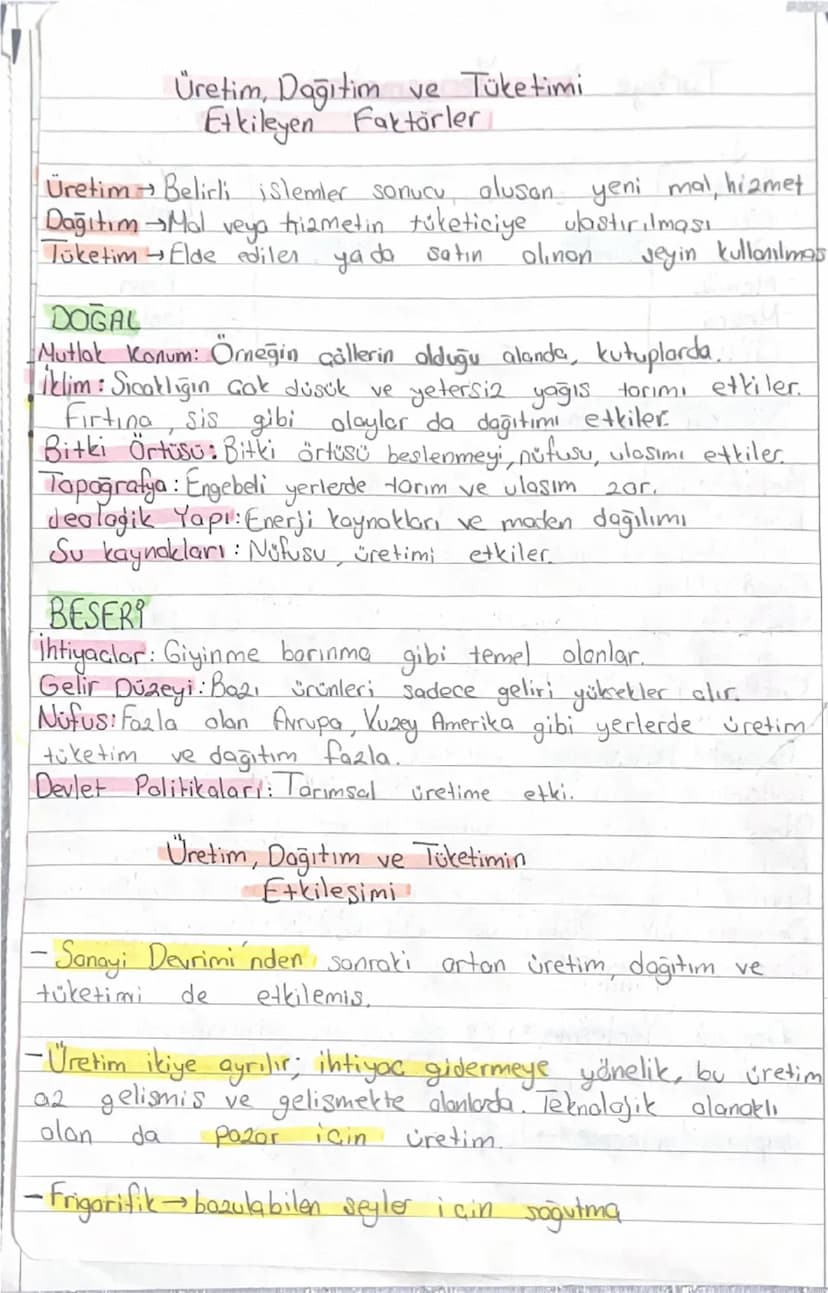 Üretim, Dağıtım ve Tüketimi
Etkileyen Faktörler
Üretim → Belirli işlemler sonucu oluşan yeni mal, hizmet
Dağıtım → Mal veya hizmetin tüketiciye ulaştırılması
Tüketim → Elde edilen yada satın alınan şeyin kullanılması
DOĞAL
Mutlak Konum: Örneğin çöllerin olduğu alanda, kutuplarda.
İklim: Sıcaklığın çok düşük ve yetersiz yağış tarımı etkiler.
Fırtına, sis gibi olaylar da dağıtımı etkiler.
Bitki Örtüsü: Bitki örtüsü beslenmeyi, nüfusu, ulaşımı etkiler.
Topoğrafya: Engebeli yerlerde tarım ve ulaşım zor.
Jeolojik Yapı: Enerji kaynakları ve maden dağılımı
Su kaynakları: Nüfusu, üretimi etkiler.
BEŞERİ
İhtiyaçlar: Giyinme barınma gibi temel olanlar.
Gelir Düzeyi: Bazı ürünleri sadece geliri yüksekler alır.
Nüfus: Fazla olan Avrupa, Kuzey Amerika gibi yerlerde üretim
tüketim ve dağıtım fazla.
Devlet Politikaları: Tarımsal üretime etki.
Üretim, Dağıtım ve Tüketimin
Etkileşimi
- Sanayi Devrimi'nden sonraki artan üretim, dağıtım ve
tüketimi de etkilemiş.
- Üretim ikiye ayrılır; ihtiyaç gidermeye yönelik, bu üretim
az gelişmiş ve gelişmekte olanlarda. Teknolojik olanaklı
olan da pazar için üretim.
- Frigorifik → bozulabilen şeyler için soğutma